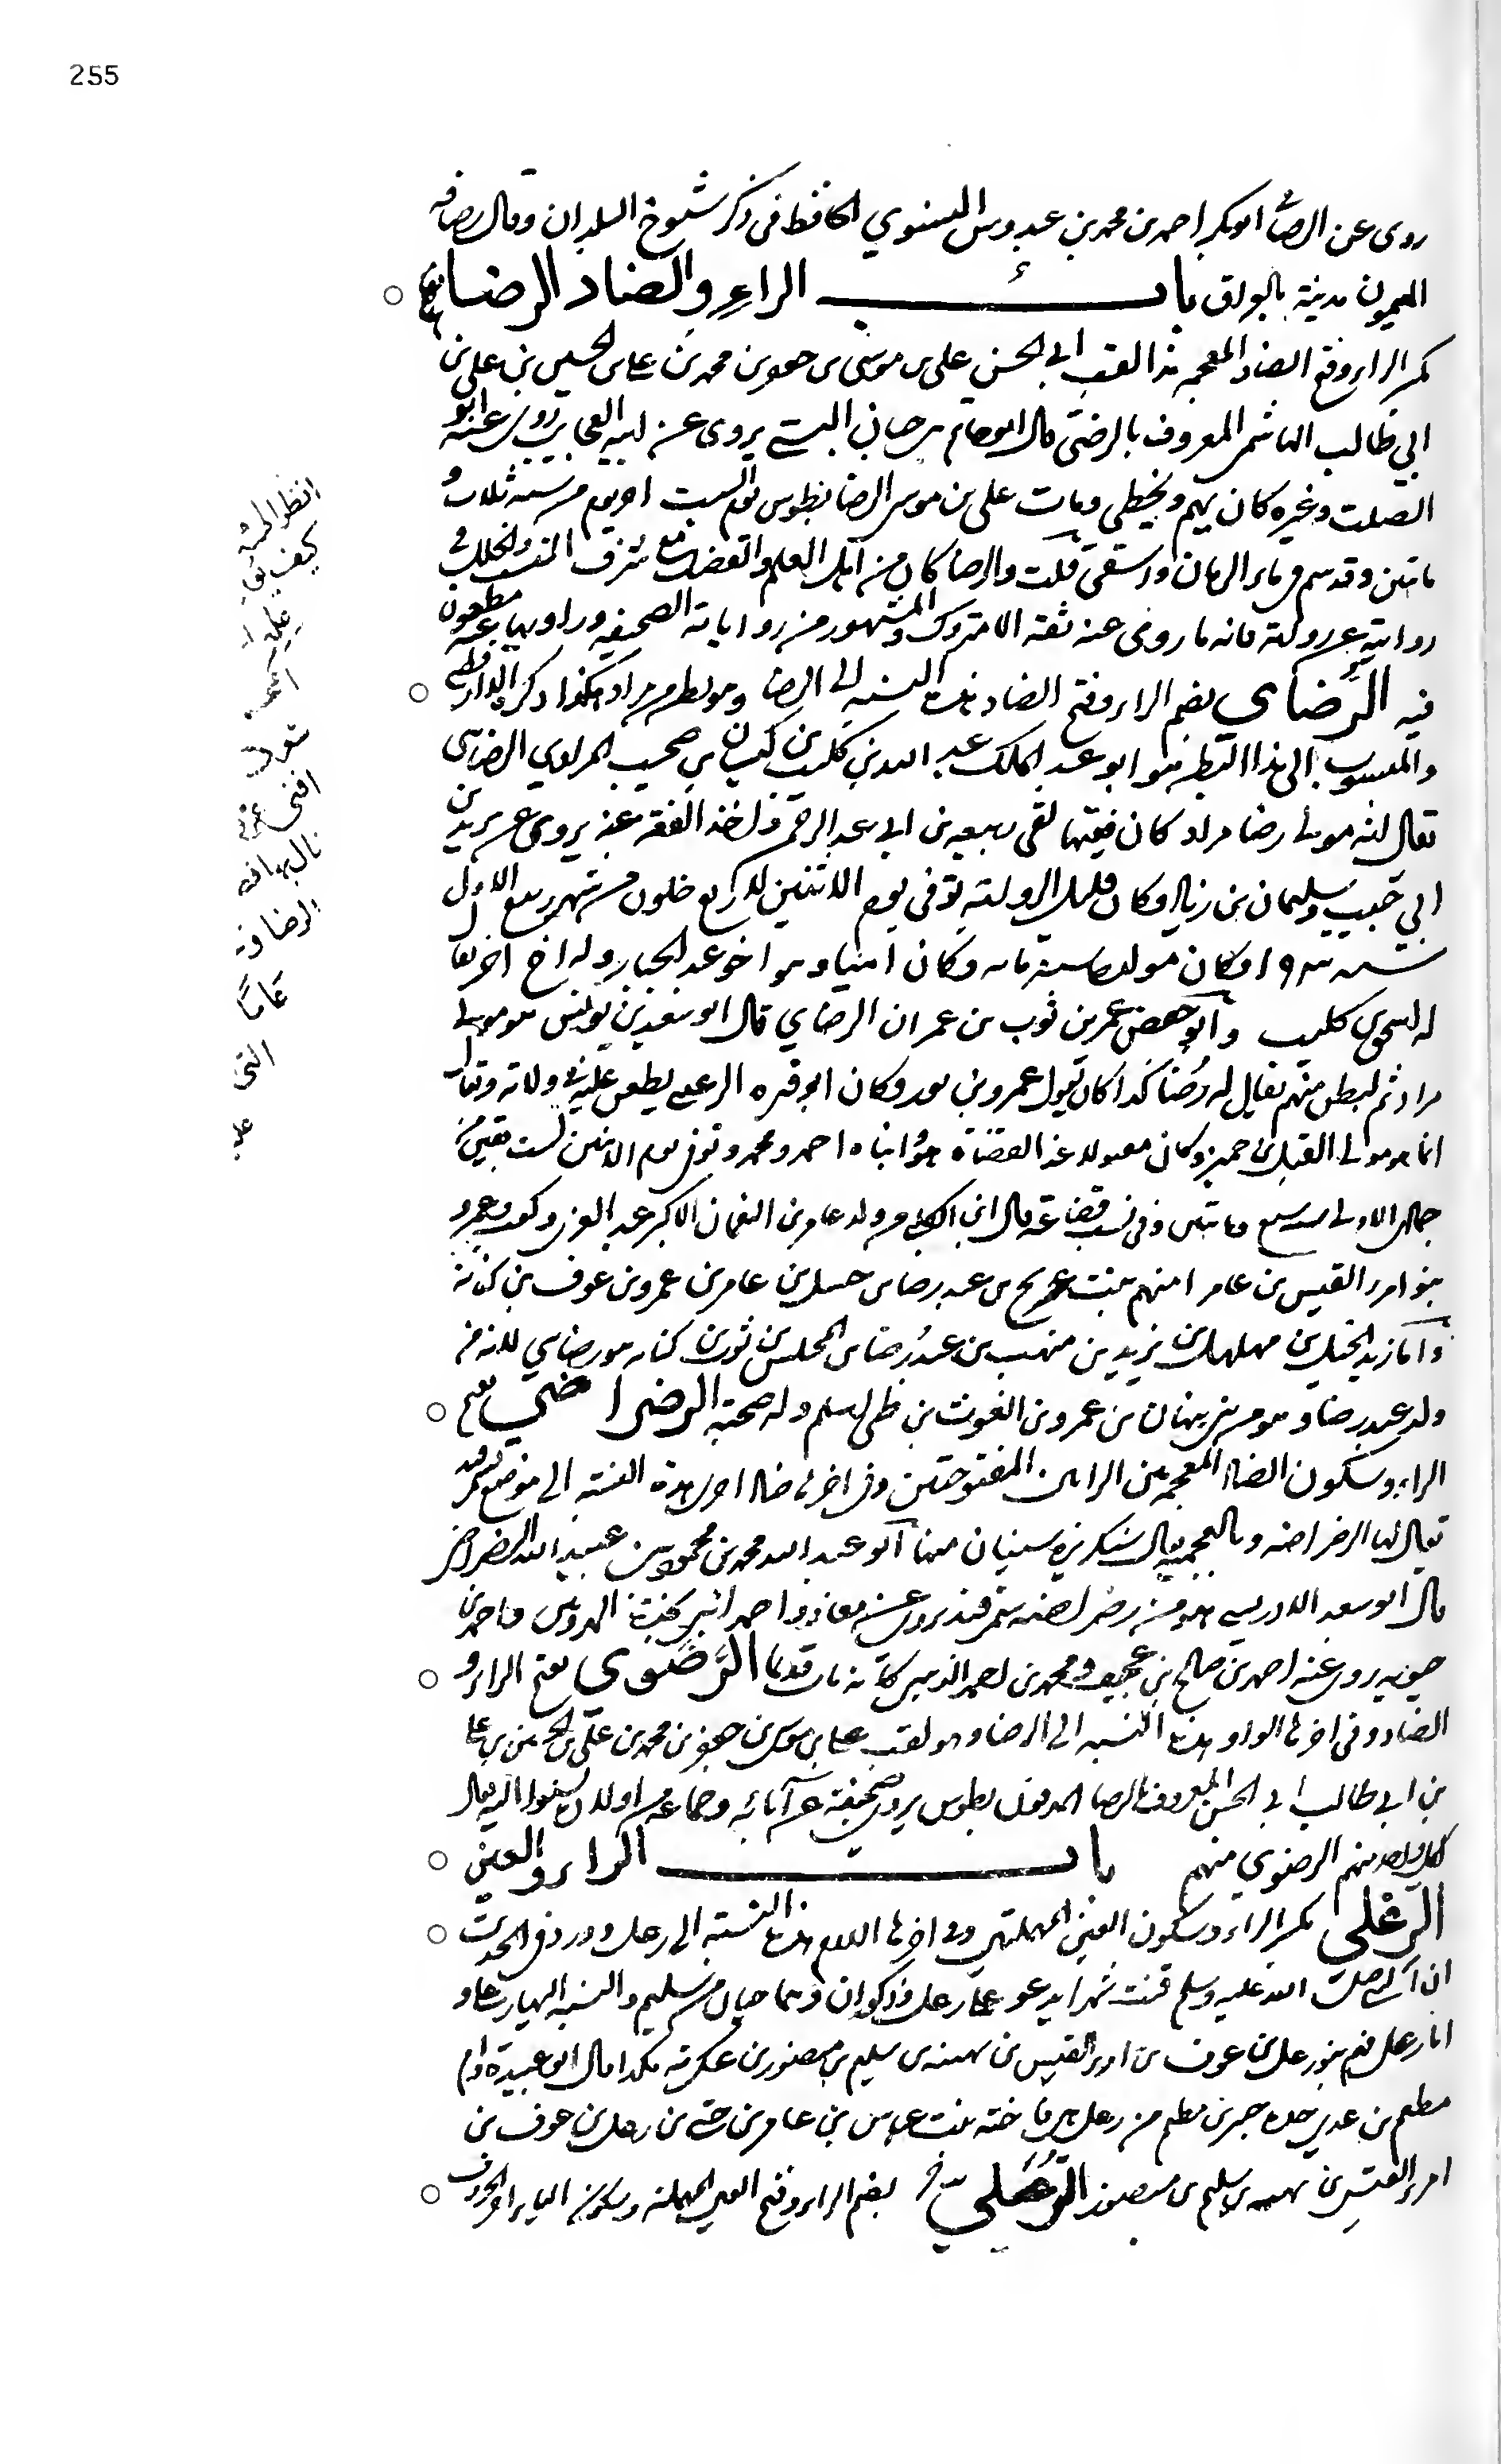 255
روى عن الرضا ابو بكر احمد بن محمد بن عبدوس النسوي الحافظ فى ذكر شيوخ البلدان وقال رصافة
الميمون مدينة بالعراق باب الراء والضاد الرضا
بكسر الراء وفتح الضاد المعجمة هذا لقب ابي الحسن علي بن موسى بن جعفر بن محمد بن علي بن الحسين بن علي بن
ابي طالب الهاشمي المعروف بالرضى قال ابو حاتم بن حبان البستي يروي عن ابيه العجايب روى عنه ابو
الصلت وغيره كان يهم ويخطي ومات علي بن موسى الرضا بطوس يوم السبت اخر يوم من سنة ثلاث و
ماتين وقد سم في ماء الرمان واسقى قلت والرضا كان من اهل العلم والفضل مع شرف النسب والخلل في
رواياته من رواته فانه ما روى عنه ثقة الا متروك والمشهور من رواياته الصحيفة وراويها عنه مطعون
فيه الرضاي بضم الراء وفتح الضاد هذه النسبة الى الرضا وهو بطن من مراد هكذا ذكره الدارقطني
والمنسوب الى هذا البطن هو ابو عبد الملك عبد الله بن كليب بن كيسان بن صهيب المرادي الرضايى
يقال انه مولى رضا مراد كان فقيها لقى ربيعة بن ابي عبد الرحمن واخذ الفقه عنه يروي عن يزيد بن
ابي حبيب وسليمان بن زياد وكان قليل الرواية توفى يوم الاثنين لاربع خلون من شهر ربيع الاول
سنة ١٩٣ وكان مولده سنة مائة وكان اميا وهو اخو عبد الجبار وله اخ اخر يقال
له اسحق بن كليب وابو حفص عمر بن ثوب بن عمران الرضاي قال ابو سعيد بن يونس هو مولى
مراد ثم لبطن منهم يقال له رضا كذا كان يقول عمرو بن ثور وكان ابو قرة الرعيني يطعن عليه في ولائه وقال
انما هو مولى القبائل من حمير وكان مقبولا عند القضاة هو وابناه احمد ومحمد وتوفى يوم الاثنين لست بقين من
جمادى الاولى سنة سبع وماتين وفى نسب قضاعة قال ابن الكلبي من ولد عامر بن النعمان الاكبر عبد العزى وكعب وعمرو
بنو امرء القيس بن عامر امنهم بنت عريج بن عبد رضا بن حسل بن عامر بن عمرو بن عوف بن كنانة
واما زيد الخيل بن مهلهل بن يزيد بن منهب بن عبد رضا بن المختلس بن ثوب بن كنانة هو رضاي لانه من
ولد عبد رضا وهو من بني نبهان بن عمرو بن الغوث بن طي اسلم وله صحبة الرضراضي بفتح
الراء وسكون الضاد المعجمة بين الراءين المفتوحتين وفى اخرها ضاد اخرى هذه النسبة الى موضع بسمرقند
يقال لها الرضراضة وبالعجمية يقال سنكريزه ستان منها ابو عبد الله محمد بن محمود بن عبد الله الرضراضي
قال ابو سعد الادريسي هو من رضراضة سمرقند يروي عن معاذ واحمد ابني نجدة الهرويين واحمد بن
حيويه روى عنه احمد بن صالح بن عجيف ومحمد بن احمد الذهبي كانه مات قديما الرضوي بفتح الراء و
الضاد وفى اخرها الواو هذه النسبة الى الرضا وهو لقب علي بن موسى بن جعفر بن محمد بن علي بن الحسين بن علي
بن ابي طالب ابي الحسن المعروف بالرضا المدفون بطوس يروي صحيفة عن آبائه وجماعة من اولاده نسبوا اليه يقال
لكل واحد منهم الرضوي منهم باب الراء والعين
الرعلي بكسر الراء وسكون العين المهملتين وفى اخرها اللام هذه النسبة الى رعل وورد فى الحديث
ان النبي صلى الله عليه وسلم قنت شهرا يدعو على رعل وذكوان وهما حيان من سليم والنسبة اليها رعلي و
اما رعل فهم بنو رعل بن عوف بن امرء القيس بن بهثة بن سليم بن منصور بن عكرمة هكذا قال ابو عبيدة وام
مطعم بن عدي جد جبير بن مطعم من رعل هي فاختة بنت عباس بن عامر بن حيي بن رعل بن عوف بن
امرء القيس بن بهثة بن سليم بن منصور الرعيلي بضم الراء وفتح العين المهملة وسكون الياء اخر الحروف